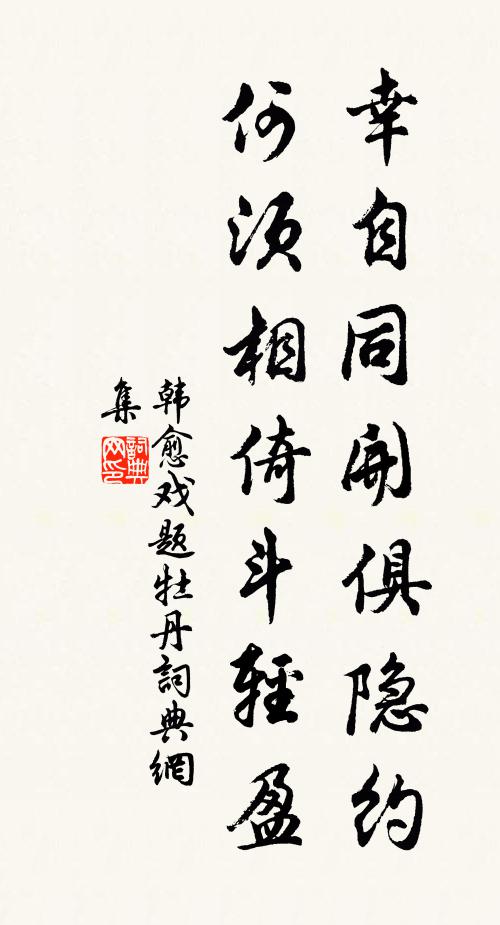 幸自同開俱隐约
何须相倚斗輕盈
韩愈戏题牡丹詞典網
集
詞典
网印